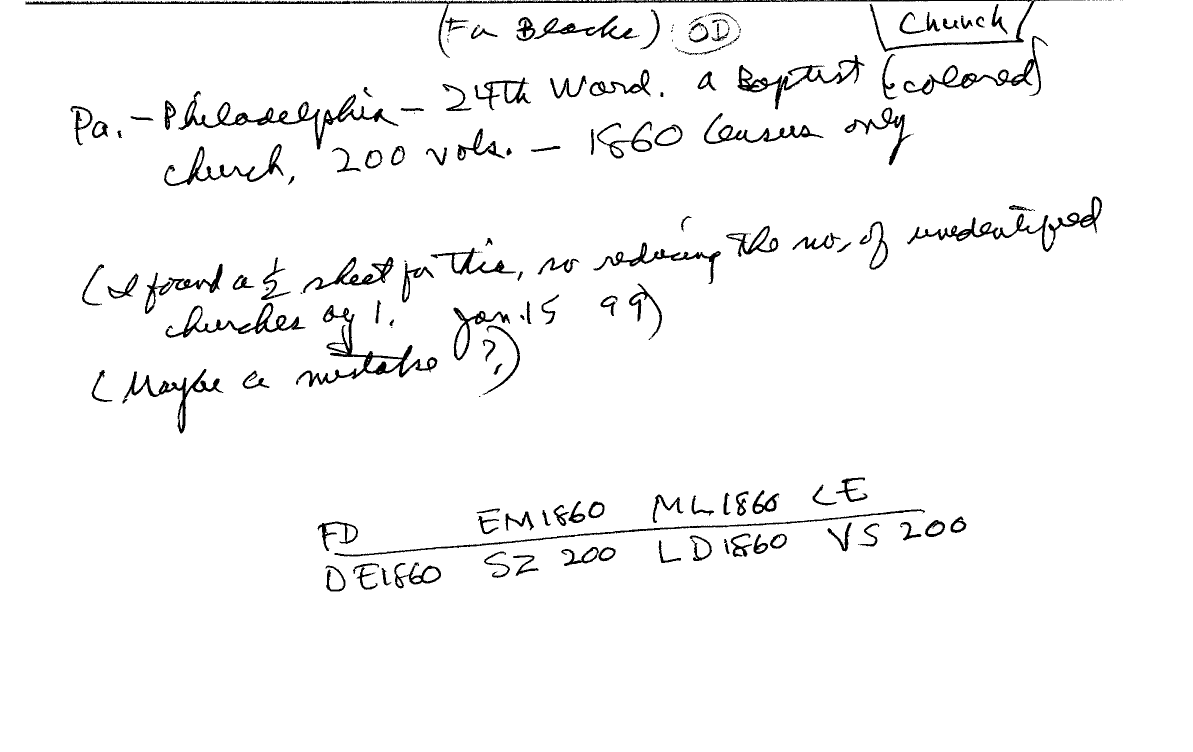 (For Blacks) OD Church
Pa. - Philadelphia - 24th Ward. a Baptist (colored)
church, 200 vols. - 1860 Census only
(I found a ½ sheet for this, so reducing the no. of unidentified
churches by 1. Jan. 15 99)
(Maybe a mistake ?)
FD EM1860 ML1860 LE
DE1860 SZ 200 LD1860 VS 200